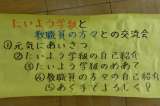 たいよう学級と
教職員の方々との交流会
①元気にあいさつ
②たいよう学級の自己紹介
③たいよう学級のめあて
④教職員の方々の自己紹介
⑤あく手でよろしく?